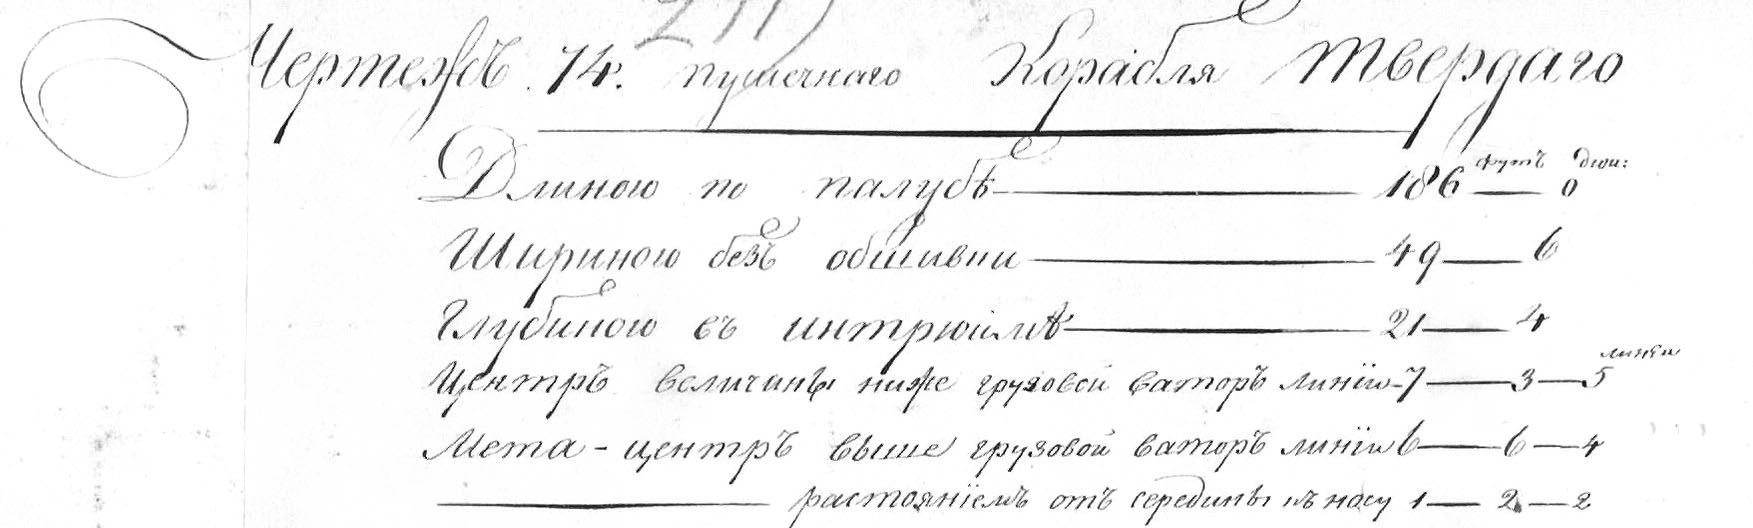 Чертежъ 74. пушечнаго Корабля Твердаго
футъ дюи:
Длиною по палубѣ 186 — 0
Шириною безъ обшивки 49 — 6
Глубиною въ интрюймѣ 21 — 4
линѣи
Центръ величины ниже грузовой ваторъ линіи 7 — 3 — 5
Мета-центръ выше грузовой ваторъ линіи 6 — 6 — 4
растояніемъ отъ середины къ носу 1 — 2 — 2